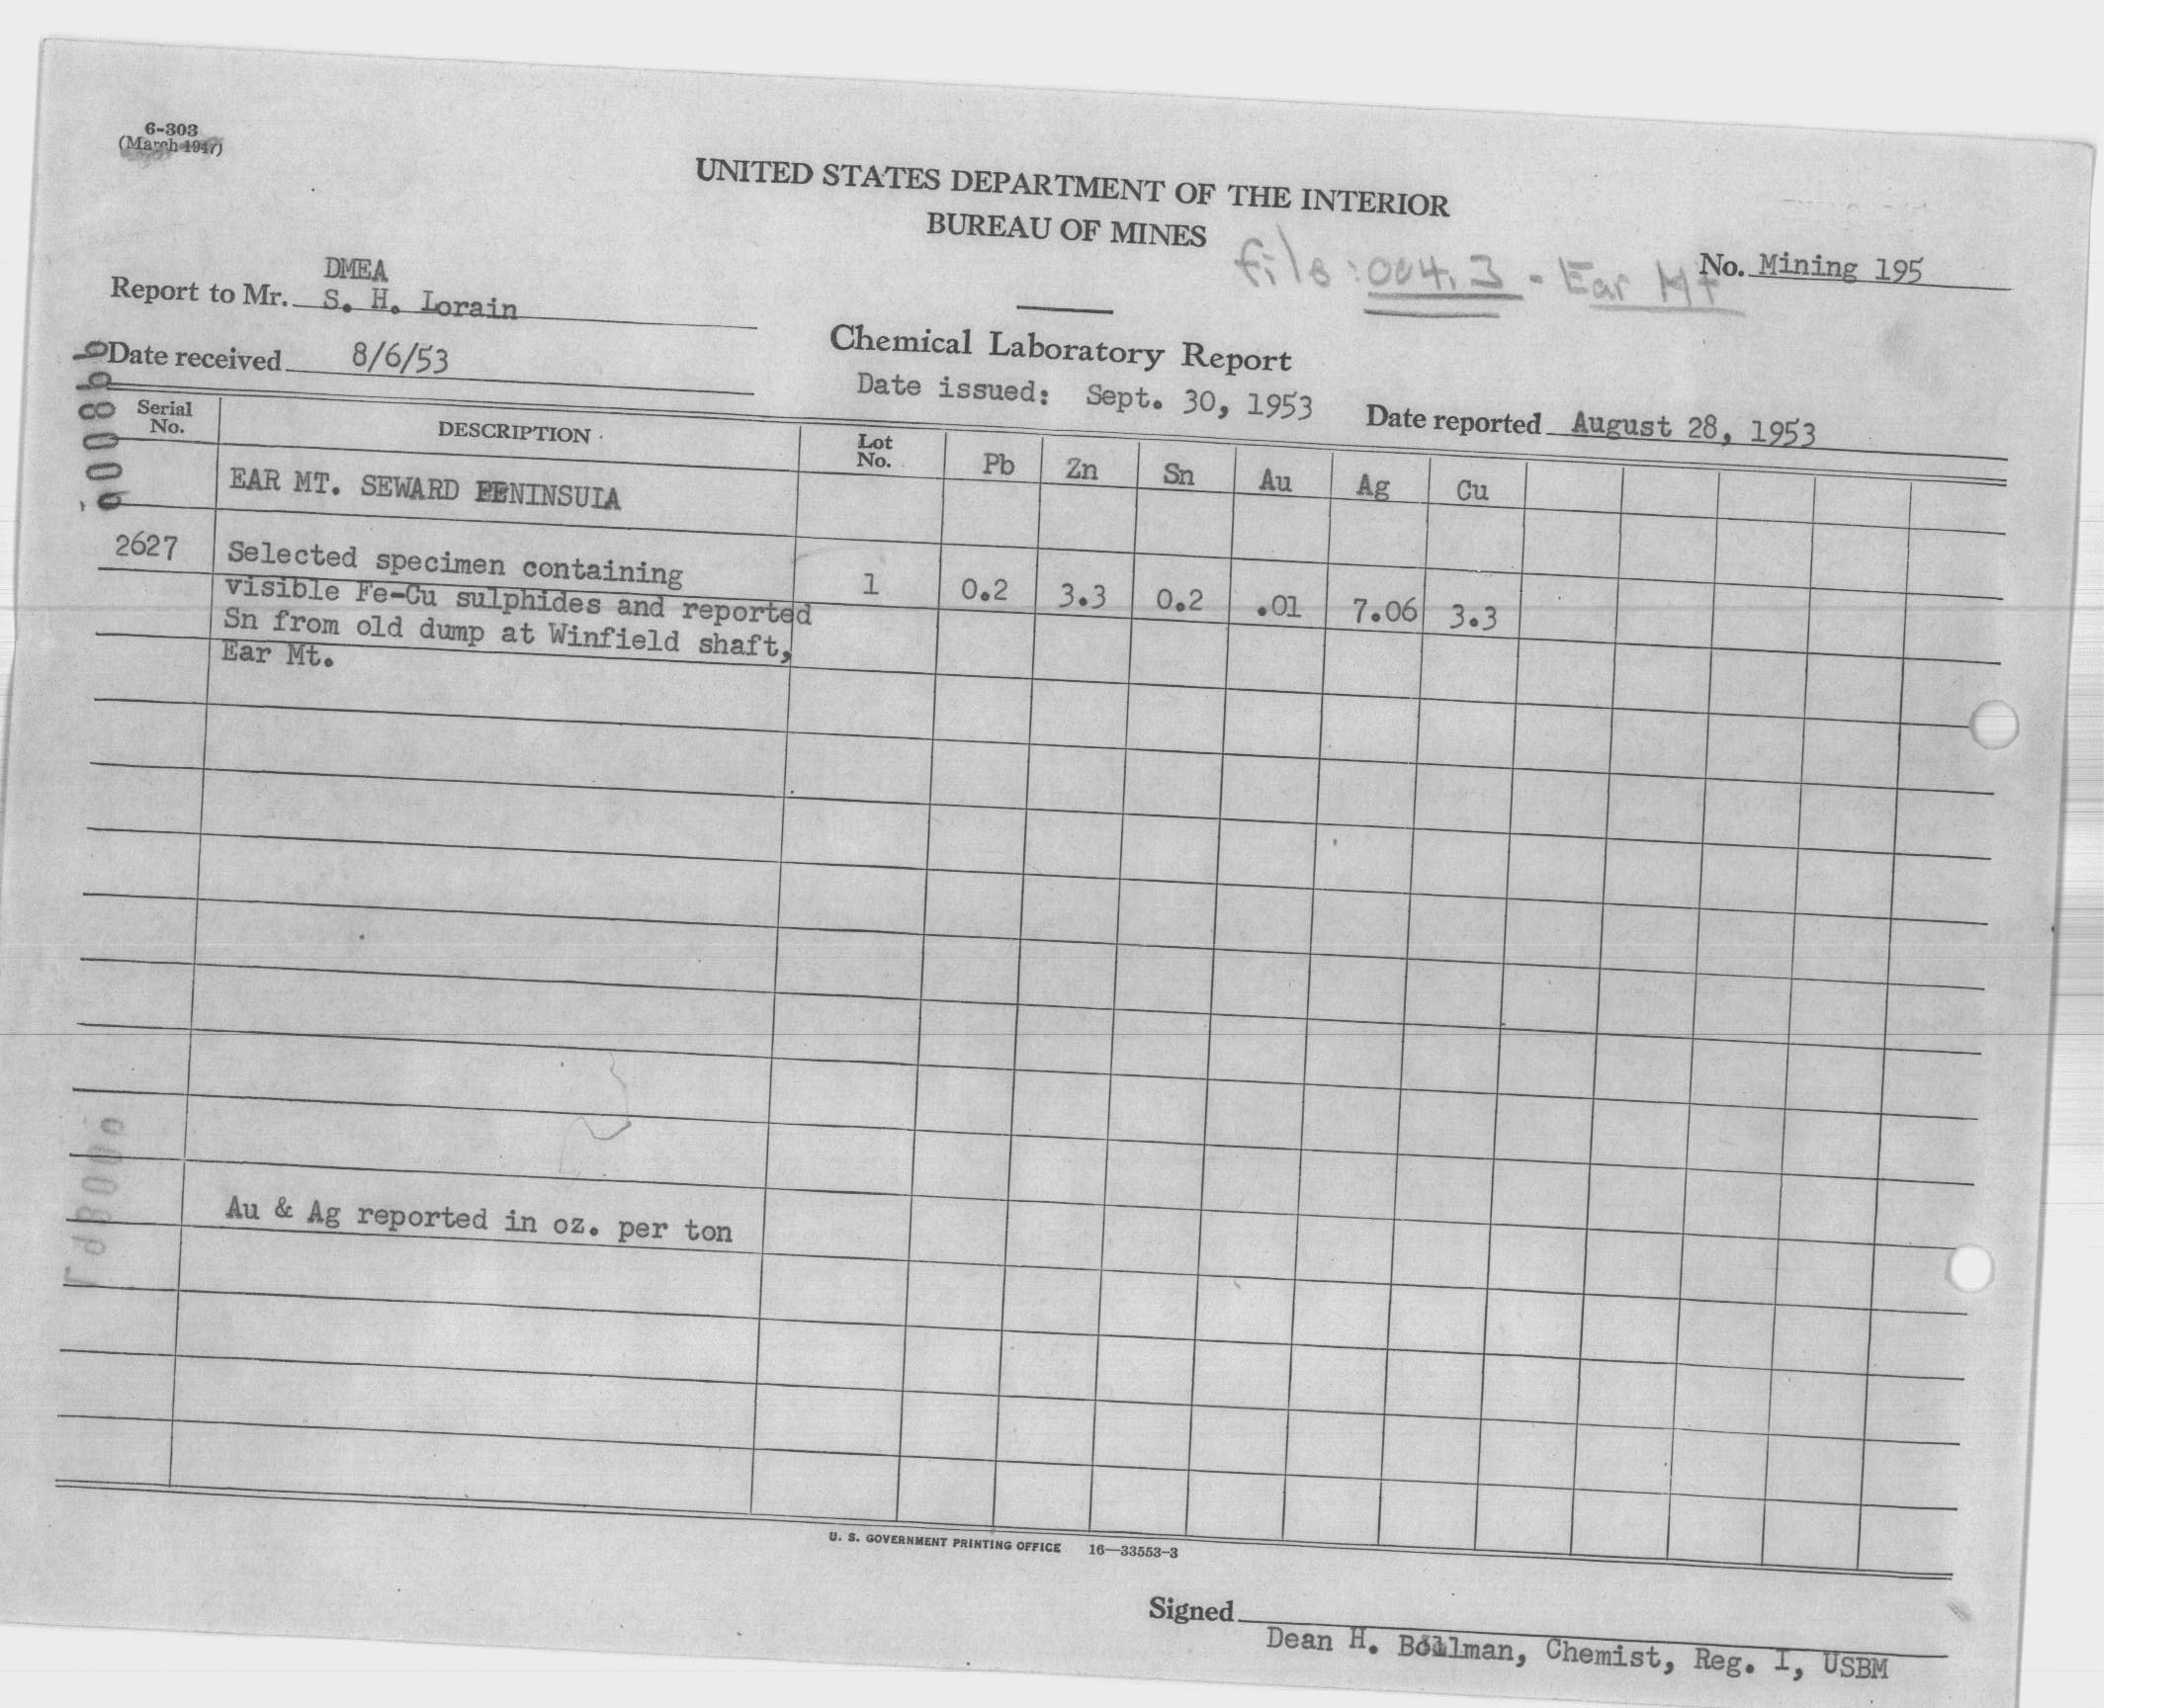 6-303
(March 1947)
UNITED STATES DEPARTMENT OF THE INTERIOR
BUREAU OF MINES
file: 004.3 - Ear Mt
No. Mining 195
DMEA
Report to Mr. S. H. Lorain
Chemical Laboratory Report
Date received 8/6/53
Date issued: Sept. 30, 1953
Date reported August 28, 1953
Serial No. DESCRIPTION Lot No. Pb Zn Sn Au Ag Cu
EAR MT. SEWARD PENINSULA
2627 Selected specimen containing 1 0.2 3.3 0.2 .01 7.06 3.3
visible Fe-Cu sulphides and reported
Sn from old dump at Winfield shaft,
Ear Mt.
Au & Ag reported in oz. per ton
U. S. GOVERNMENT PRINTING OFFICE 16—33553-3
Signed
Dean H. Bollman, Chemist, Reg. I, USBM